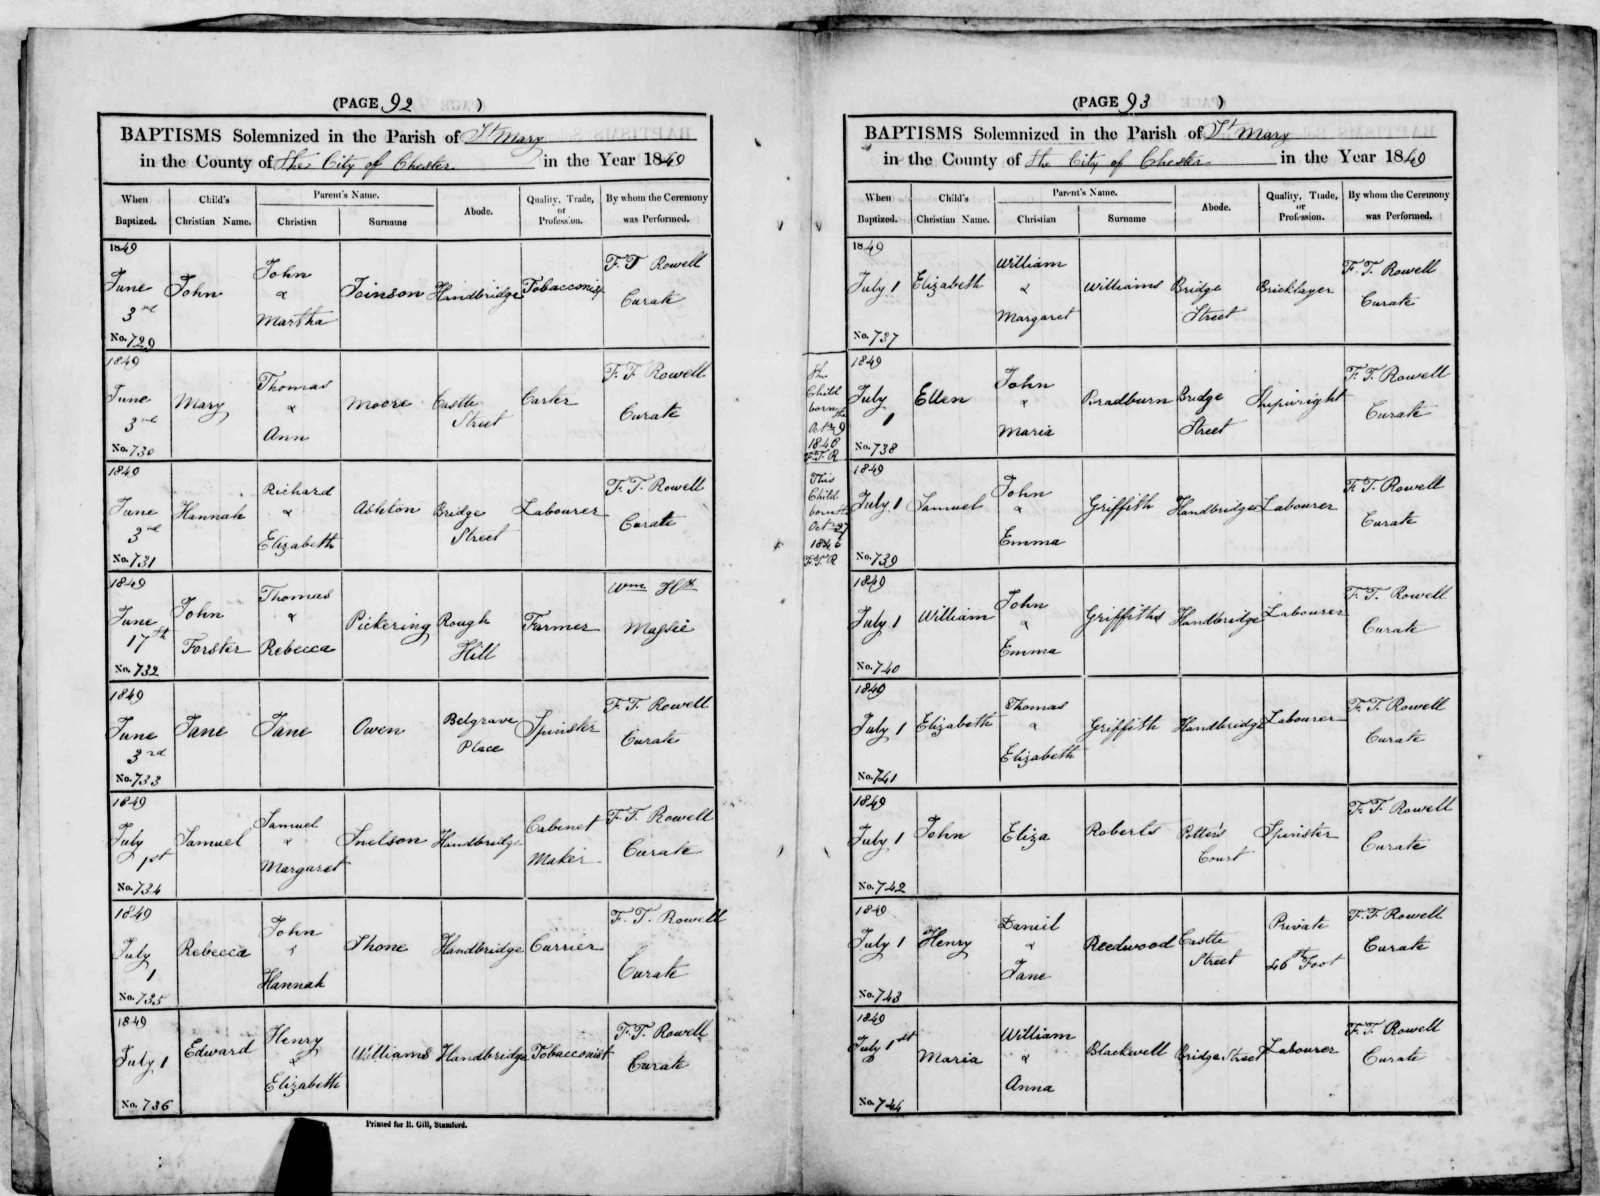 (PAGE 92 )
BAPTISMS Solemnized in the Parish of St Mary
in the County of The City of Chester in the Year 1849
When Baptized. Child's Christian Name. Parent's Name. Christian Surname Abode. Quality, Trade, or Profession. By whom the Ceremony was Performed.
1849
June 3rd John John & Martha Joinson Handbridge Tobacconist F. T Rowell Curate
No. 729
1849
June 3rd Mary Thomas & Ann Moore Castle Street Carter F. T Rowell Curate
No. 730
1849
June 3rd Hannah Richard & Elizabeth Ashton Bridge Street Labourer F. T. Rowell Curate
No. 731
1849
June 17th John Forster Thomas & Rebecca Pickering Rough Hill Farmer Wm Hy Massie
No. 732
1849
June 3rd Jane Jane Owen Belgrave Place Spinster F. T. Rowell Curate
No. 733
1849
July 1st Samuel Samuel & Margaret Snelson Handbridge Cabinet Maker F. T. Rowell Curate
No. 734
1849
July 1 Rebecca John & Hannah Shone Handbridge Currier F. T. Rowell Curate
No. 735
1849
July 1 Edward Henry & Elizabeth Williams Handbridge Tobacconist F. T. Rowell Curate
No. 736
Printed for R. Gill, Stamford.
(PAGE 93 )
BAPTISMS Solemnized in the Parish of St Mary
in the County of The City of Chester in the Year 1849
When Baptized. Child's Christian Name. Parent's Name. Christian Surname Abode. Quality, Trade, or Profession. By whom the Ceremony was Performed.
1849
July 1 Elizabeth William & Margaret Williams Bridge Street Bricklayer F. T. Rowell Curate
No. 737
The
Child
born the
1848
F. T. R
1849
July 1 Ellen John & Maria Bradburn Bridge Street Shipwright F. T. Rowell Curate
No. 738
This
Child
born
Oct 27
1846
F. T. R
1849
July 1 Samuel John & Emma Griffith Handbridge Labourer F. T. Rowell Curate
No. 739
1849
July 1 William John & Emma Griffiths Handbridge Labourer F. T. Rowell Curate
No. 740
1849
July 1 Elizabeth Thomas & Elizabeth Griffith Handbridge Labourer F. T. Rowell Curate
No. 741
1849
July 1 John Eliza Roberts Court Spinster F. T. Rowell Curate
No. 742
1849
July 1 Henry Daniel & Jane Reedwood Castle Street Private 46th Foot F. T. Rowell Curate
No. 743
1849
July 1st Maria William & Anna Blackwell Bridge Street Labourer F. T. Rowell Curate
No. 744